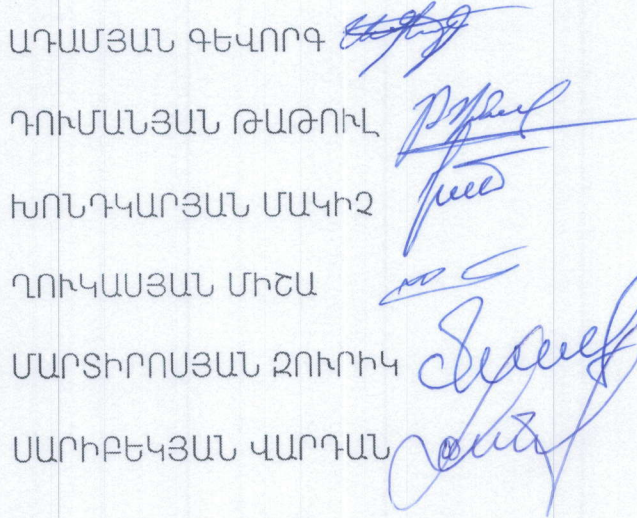 ԱԴԱՄՅԱՆ ԳԵՎՈՐԳ
ԴՈՒՄԱՆՅԱՆ ԹԱԹՈՒԼ
ԽՈՆԴԿԱՐՅԱՆ ՄԱԿԻՉ
ՂՈՒԿԱՍՅԱՆ ՄԻՇԱ
ՄԱՐՏԻՐՈՍՅԱՆ ԶՈՒՐԻԿ
ՍԱՐԻԲԵԿՅԱՆ ՎԱՐԴԱՆ